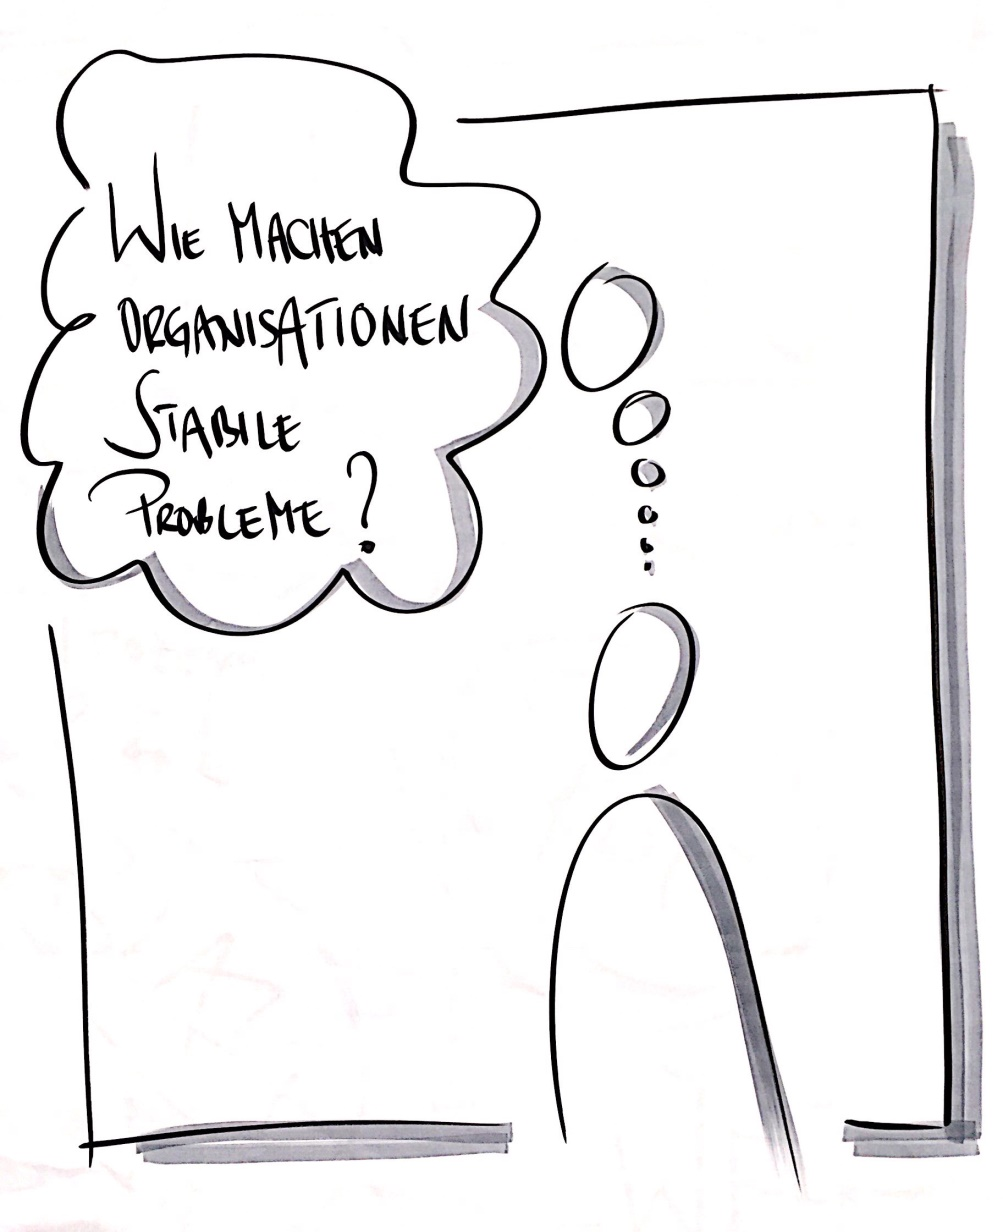 WIE MACHEN
ORGANISATIONEN
STABILE
PROBLEME?